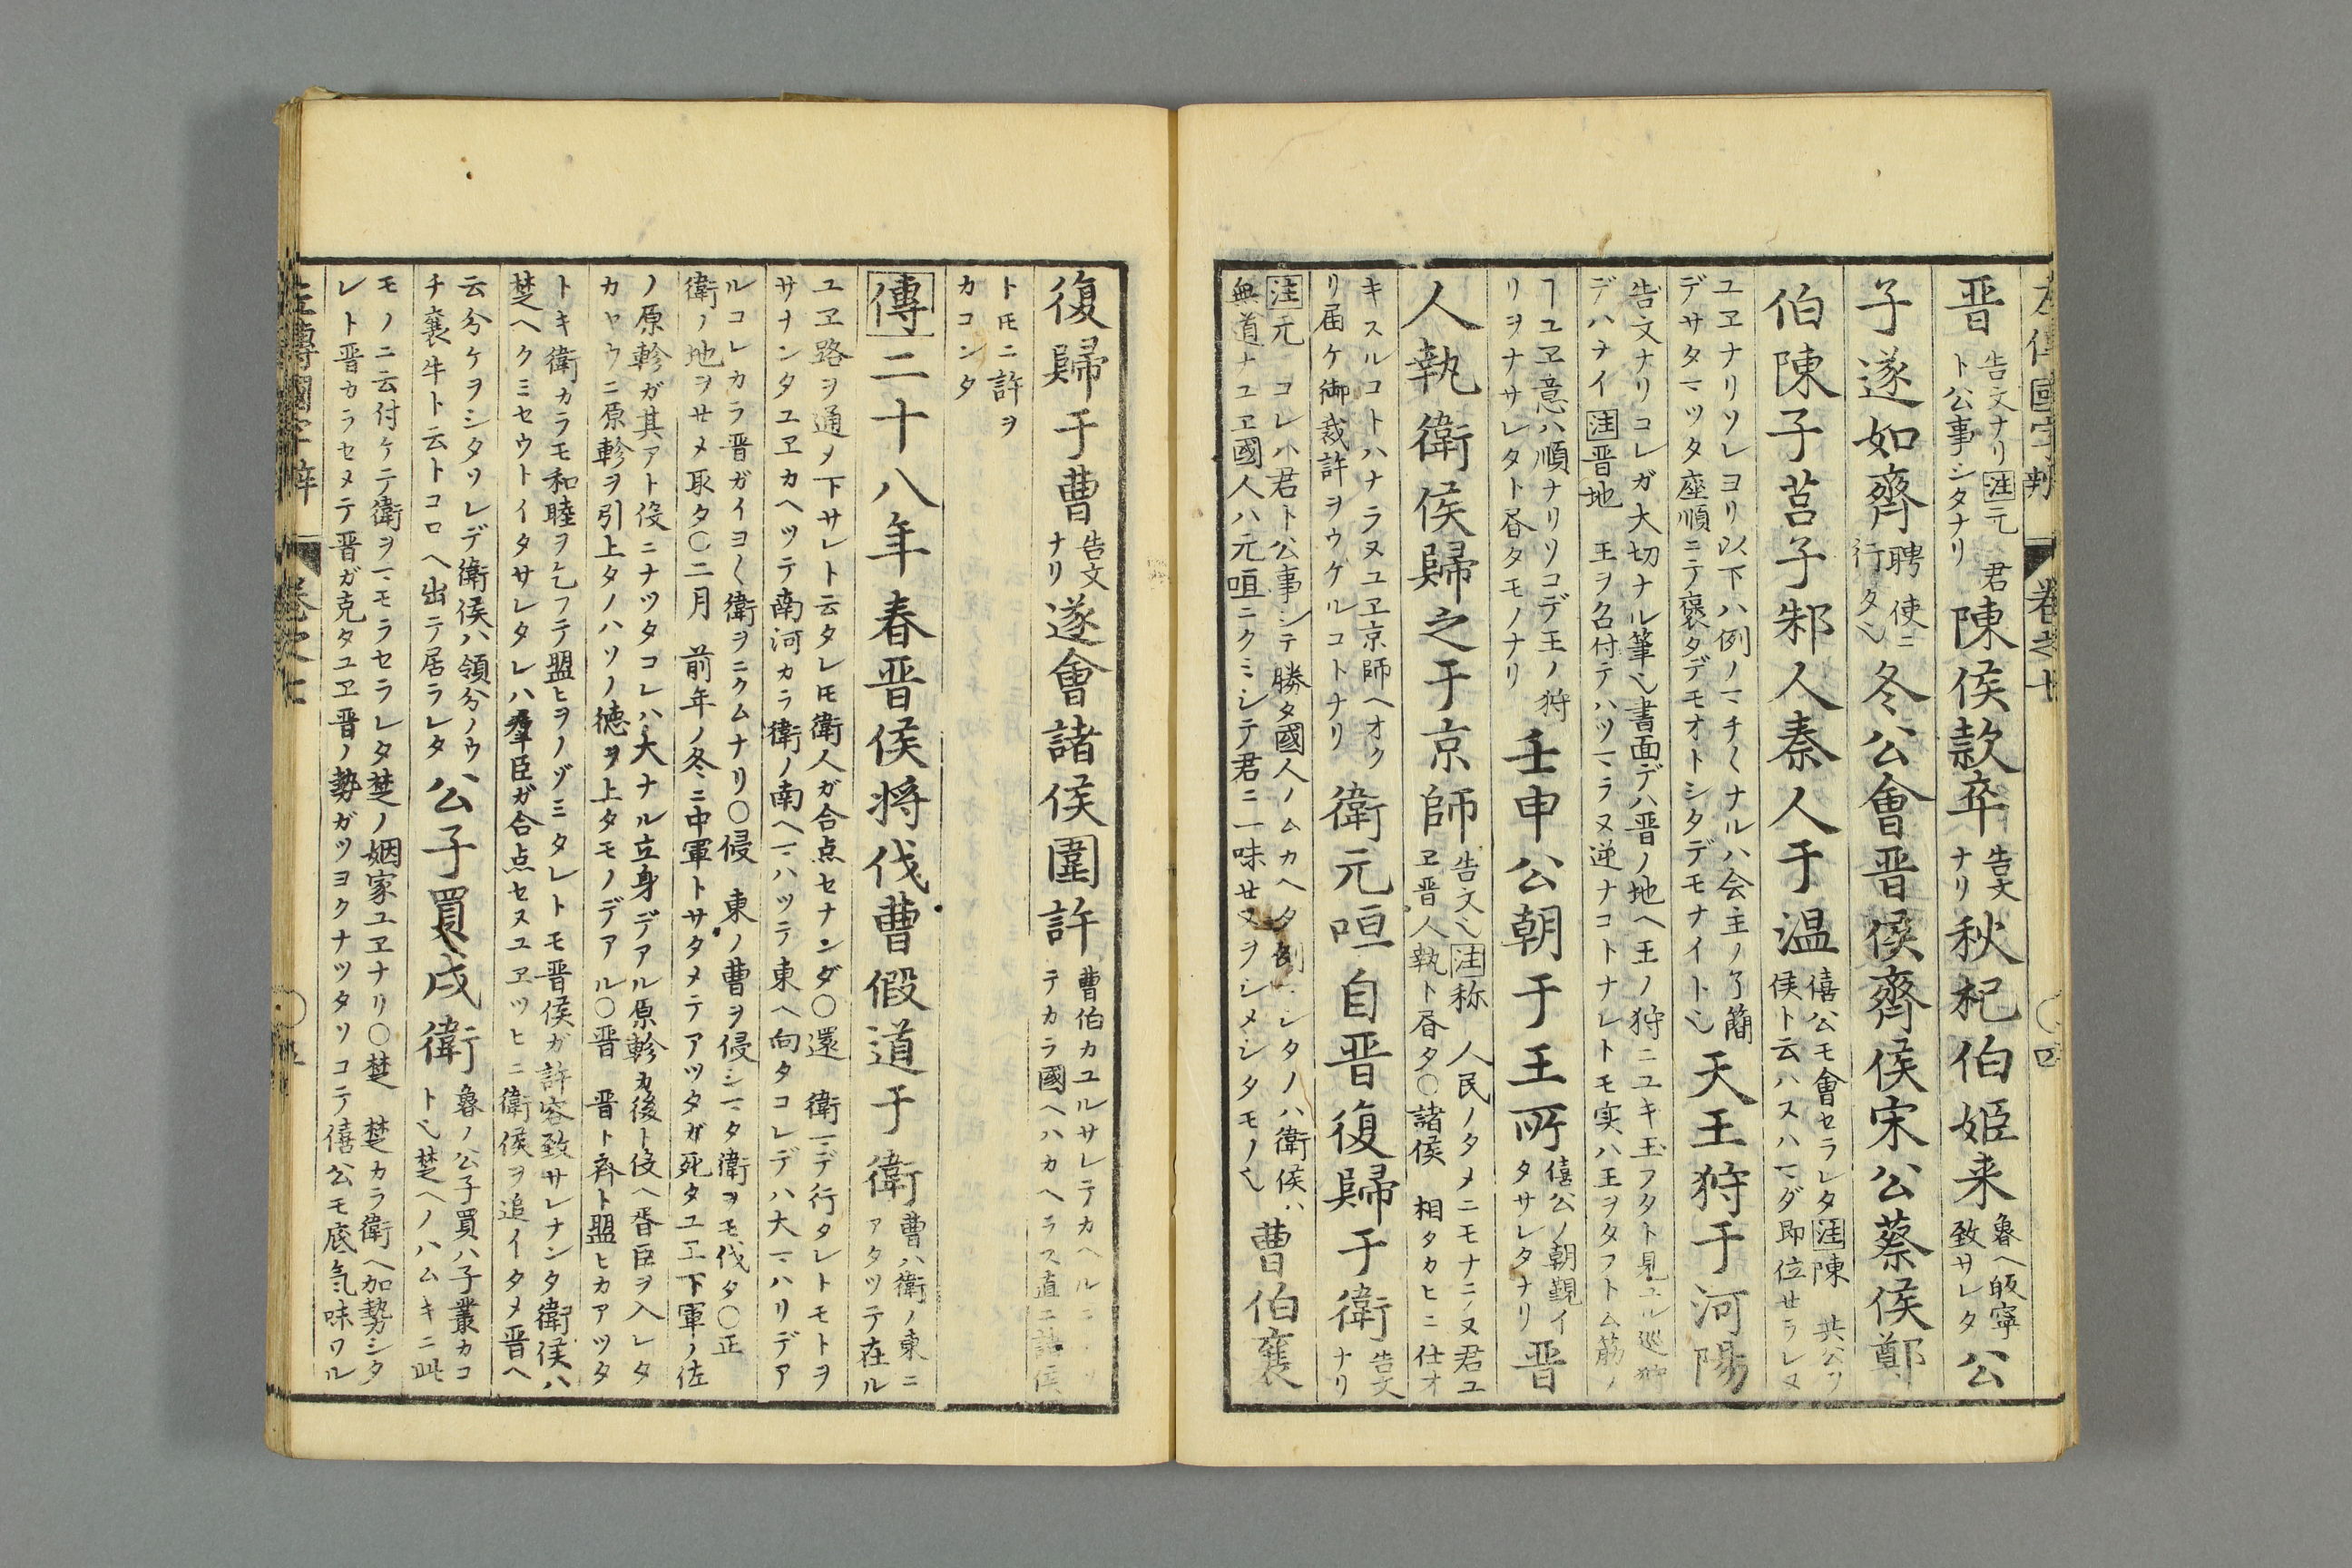 左傳國字辨 卷之七
晋告文ナリ注元 君ト公事シタナリ陳侯款卒告文ナリ秋杞伯姫来魯ヘ皈寧致サレタ公
子遂如齊聘 使ニ行タヘ冬公會晋侯齊侯宋公蔡侯鄭
伯陳子莒子邾人秦人于温僖公モ會セラレタ注陳 共公ソ侯ト云ハスハマダ即位セラレヌ
ユヱナリソレヨリ以下ハ例ノマチ〱ナルハ会主ノ了簡デサタマツタ座順ニテ褒タデモオトシタデモナイトヘ天王狩于河陽
告文ナリコレガ大切ナル筆ヘ書面デハ晋ノ地ヘ王ノ狩ニユキ玉フタト見ユル巡狩デハナイ注晋地 王ヲ召付テハツマラヌ逆ナコトナレトモ実ハ王ヲタフトム筋ノ
ヿユヱ意ハ順ナリソコデ王ノ狩リヲナサレタト昏タモノナリ壬申公朝于王所僖公ノ朝覲イタサレタナリ晋
人執衛侯歸之于京師告文ヘ注称 人民ノタメニモナニノヌ君ユヱ晋人執ト昏タ〇諸侯 相タカヒニ仕オ
キスルコトハナラヌユヱ京師ヘオクリ届ケ御裁許ヲウケルコトナリ衛元咺自晋復歸于衛告文ナリ
注元 コレハ君ト公事シテ勝タ國人ノムカヘタ シタノハ衛侯ハ無道ナユヱ國人ハ元咺ニクミシテ君ニ一味セヌヲシメシタモノヘ曹伯襄
復歸于曹告文ナリ遂會諸侯圍許曹伯カユルサレテカヘルニ テカラ國ヘハカヘラス直ニ諸侯
トモニ許ヲカコンタ
傳二十八年春晋侯将伐曹假道于衛曹ハ衛ノ東ニアタツテ在ル
ユヱ路ヲ通メ下サレト云タレ𪜈衛人ガ合点セナンダ〇還 衛マデ行タレトモトヲサナンタユヱカヘツテ南河カラ衛ノ南ヘマハツテ東ヘ向タコレデハ大マハリデア
ルコレカラ晋ガイヨ〱衛ヲニクムナリ〇侵 東ノ曹ヲ侵シマタ衛ヲモ伐タ〇正衛ノ地ヲセメ取タ〇二月 前年ノ冬ニ中軍トサタメテアツタガ死タユヱ下軍ノ佐
ノ原軫ガ其アト役ニナツタコレハ大ナル立身デアル原軫カ後ト役ヘ胥臣ヲ入レタカヤウニ原軫ヲ引上タノハソノ徳ヲ上タモノデアル〇晋 晋ト齊ト盟ヒカアツタ
トキ衛カラモ和睦ヲ乞フテ盟ヒヲノゾミタレトモ晋侯ガ許容致サレナンタ衛侯ハ楚ヘクミセウトイタサレタレハ羣臣ガ合点セヌユヱツヒニ衛侯ヲ追イタメ晋ヘ
云分ケヲシタソレデ衛侯ハ領分ノウチ襄牛ト云トコロヘ出テ居ラレタ公子買戍衛魯ノ公子買ハ子叢カコトヘ楚ヘノハムキニ此
モノニ云付ケテ衛ヲマモラセラレタ楚ノ姻家ユヱナリ〇楚 楚カラ衛ヘ加勢シタレト晋カラセメテ晋ガ克タユヱ晋ノ勢ガツヨクナツタソコテ僖公モ底氣味ワル
左傳國字辨 卷之七